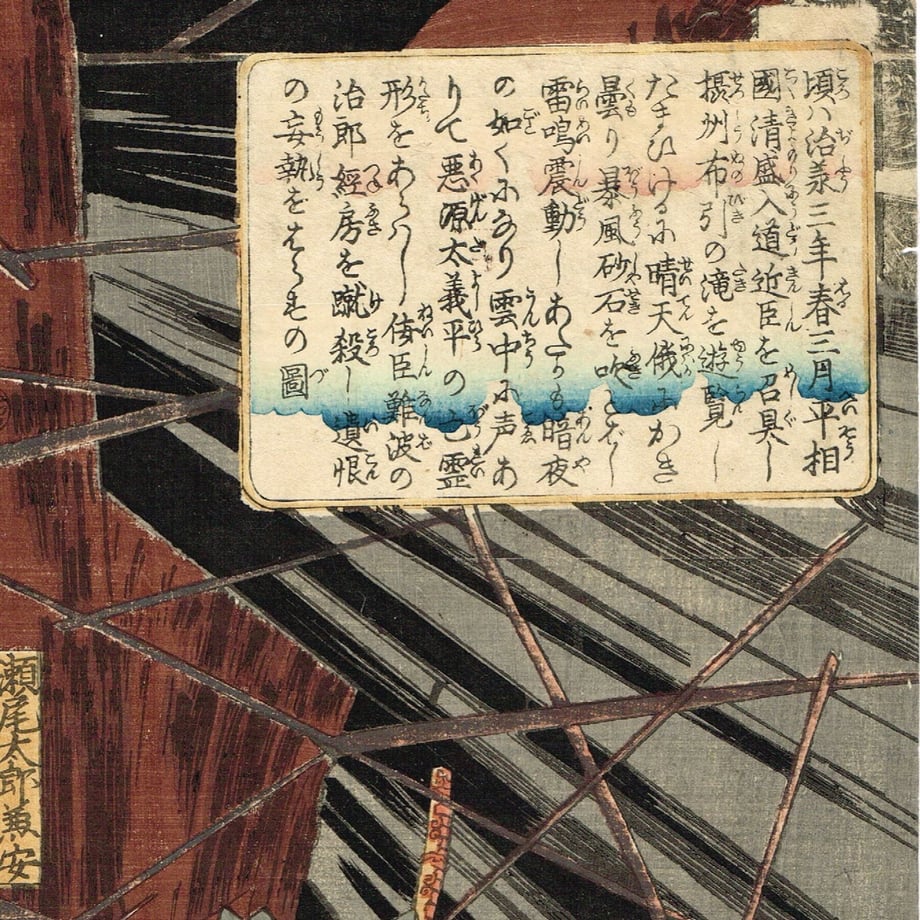 頃ハ治承三年春三月平相
國清盛入道近臣を召具し
摂州布引の滝を遊覧し
たまひけるに晴天俄にかき
曇り暴風砂石を吹とばし
雷鳴震動しあたかも暗夜
の如くになり雲中に声あ
りて悪源太義平の亡霊
形をあらハし侫臣難波の
治郎経房を蹴殺し遺恨
の妄執をはらせしの圖
瀬尾太郎兼安